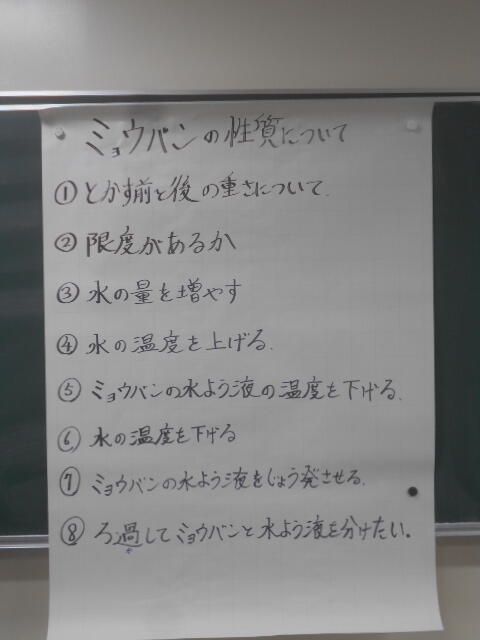 ミョウバンの性質について
①とかす前と後の重さについて.
②限度があるか
③水の量を増やす
④水の温度を上げる.
⑤ミョウバンの水よう液の温度を下げる.
⑥水の温度を下げる
⑦ミョウバンの水よう液をじょう発させる.
⑧ろ過してミョウバンと水よう液を分けたい。